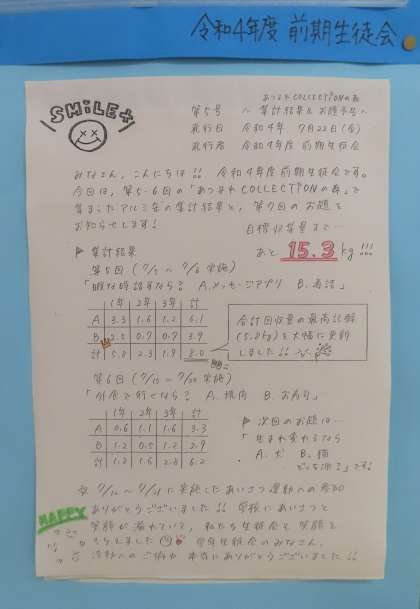 令和4年度 前期生徒会
SMiLE+
あつまれCOLLECTIONの森
第5号 〜集計結果&お題予告〜
発行日 令和4年 7月22日(金)
発行者 令和4年度 前期生徒会
みなさん、こんにちは!! 令和4年度前期生徒会です。
今回は、第5・6回の「あつまれCOLLECTIONの森」で
集まったアルミ缶の集計結果と、第7回のお題を
お知らせします!
目標収集量まで…
あと 15.3 kg!!!
集計結果
第5回 (7/5〜7/8 実施)
「暇な時話すなら? A.メッセージアプリ B.電話」
1年 2年 3年 計
A 3.3 1.6 1.2 6.1
B 2.5 0.7 0.7 3.9
計 5.8 2.3 1.9 8.0
合計回収量の最高記録
(5.8kg)を大幅に更新
しました!!
第6回 (7/15〜7/20 実施)
「外食で行くなら? A.焼肉 B.お寿司」
1年 2年 3年 計
A 0.6 1.1 1.6 3.3
B 1.2 0.5 1.2 2.9
計 1.8 1.6 2.8 6.2
次回のお題は…
「生まれ変わるなら
A.犬 B.猫
どっち派?」です!
に実施したあいさつ運動への参加
ありがとうございました!! 学校にあいさつと
笑顔が溢れていて、私たち生徒会も笑顔を
もらえました
HAPPY
学年生徒会のみなさん、
活動へのご協力 本当にありがとうございました!!